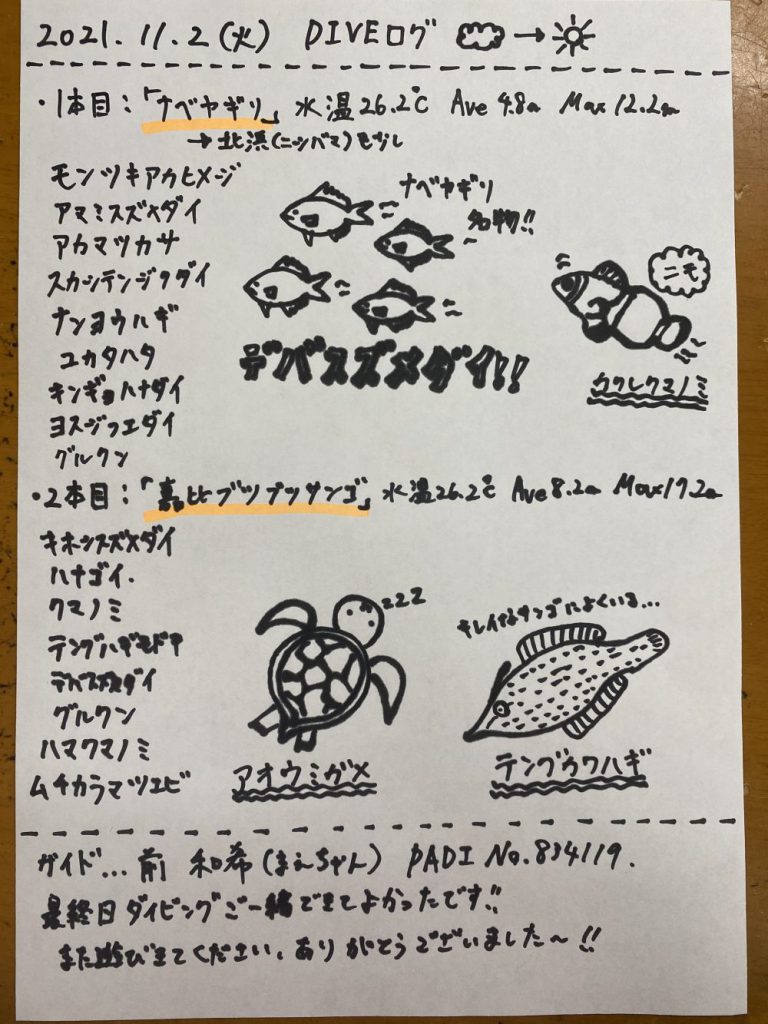 2021.11.2(火) DIVEログ
・1本目:「ナベヤギリ」 水温26.2℃ Ave 4.8m Max 12.2m
→北浜(ニシバマ)もどし
モンツキアカヒメジ
アマミスズメダイ
アカマツカサ
スカシテンジクダイ
ナンヨウハギ
ユカタハタ
キンギョハナダイ
ヨスジフエダイ
グルクン
ナベヤギリ
名物!!
デバスズメダイ!!
ニモ
カクレクマノミ
・2本目:「嘉比ブツブツサンゴ」 水温26.2℃ Ave 8.2m Max 19.2m
キホシスズメダイ
ハナゴイ.
クマノミ
テングハギモドキ
デバスズメダイ
グルクン
ハマクマノミ
ムチカラマツエビ
zzz
アオウミガメ
キレイなサンゴによくいる…
テングカワハギ
ガイド… 前 和希(まえちゃん) PADI No.834119.
最終日ダイビングご一緒できてよかったです!!
また遊びきてください、ありがとうございました〜!!